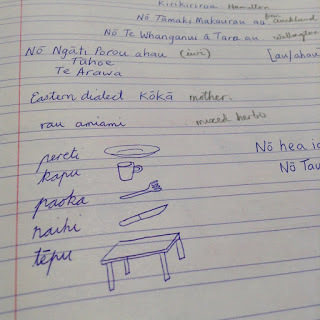 Kirikiriroa Hamilton
Nō Tāmaki Makaurau aa from Auckland
Nō Te Whanganui ā Tara au Wellington
Nō Ngāti Porou ahau (iwi) [au/ahau
Tuhoe
Te Arawa
Eastern dialect Kōkā mother.
rau amiami mixed herbs
pereti
kapu
paoka
naihi
tēpu
Nō hea ia
Nō Tau